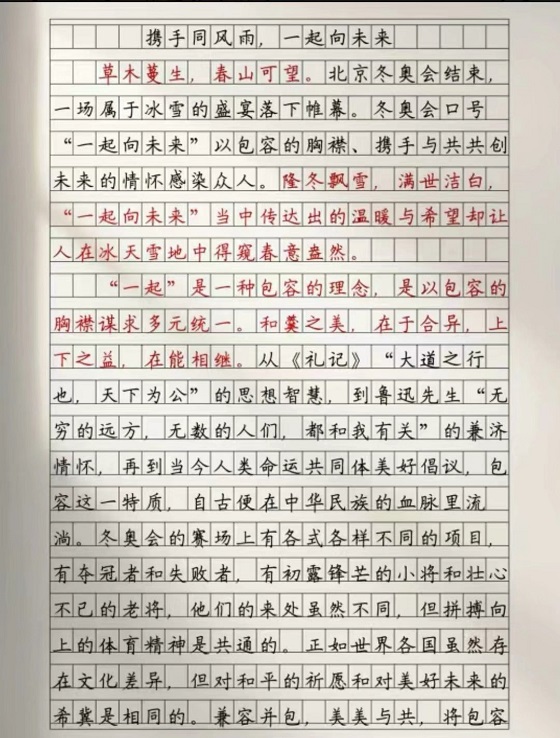 携手同风雨，一起向未来
草木蔓生，春山可望。北京冬奥会结束，
一场属于冰雪的盛宴落下帷幕。冬奥会口号
“一起向未来”以包容的胸襟、携手与共共创
未来的情怀感染众人。隆冬飘雪，满世洁白，
“一起向未来”当中传达出的温暖与希望却让
人在冰天雪地中得窥春意盎然。
“一起”是一种包容的理念，是以包容的
胸襟谋求多元统一。和羹之美，在于合异，上
下之益，在能相继。从《礼记》“大道之行
也，天下为公”的思想智慧，到鲁迅先生“无
穷的远方，无数的人们，都和我有关”的兼济
情怀，再到当今人类命运共同体美好倡议，包
容这一特质，自古便在中华民族的血脉里流
淌。冬奥会的赛场上有各式各样不同的项目，
有夺冠者和失败者，有初露锋芒的小将和壮心
不已的老将，他们的来处虽然不同，但拼搏向
上的体育精神是共通的。正如世界各国虽然存
在文化差异，但对和平的祈愿和对美好未来的
希冀是相同的。兼容并包，美美与共，将包容